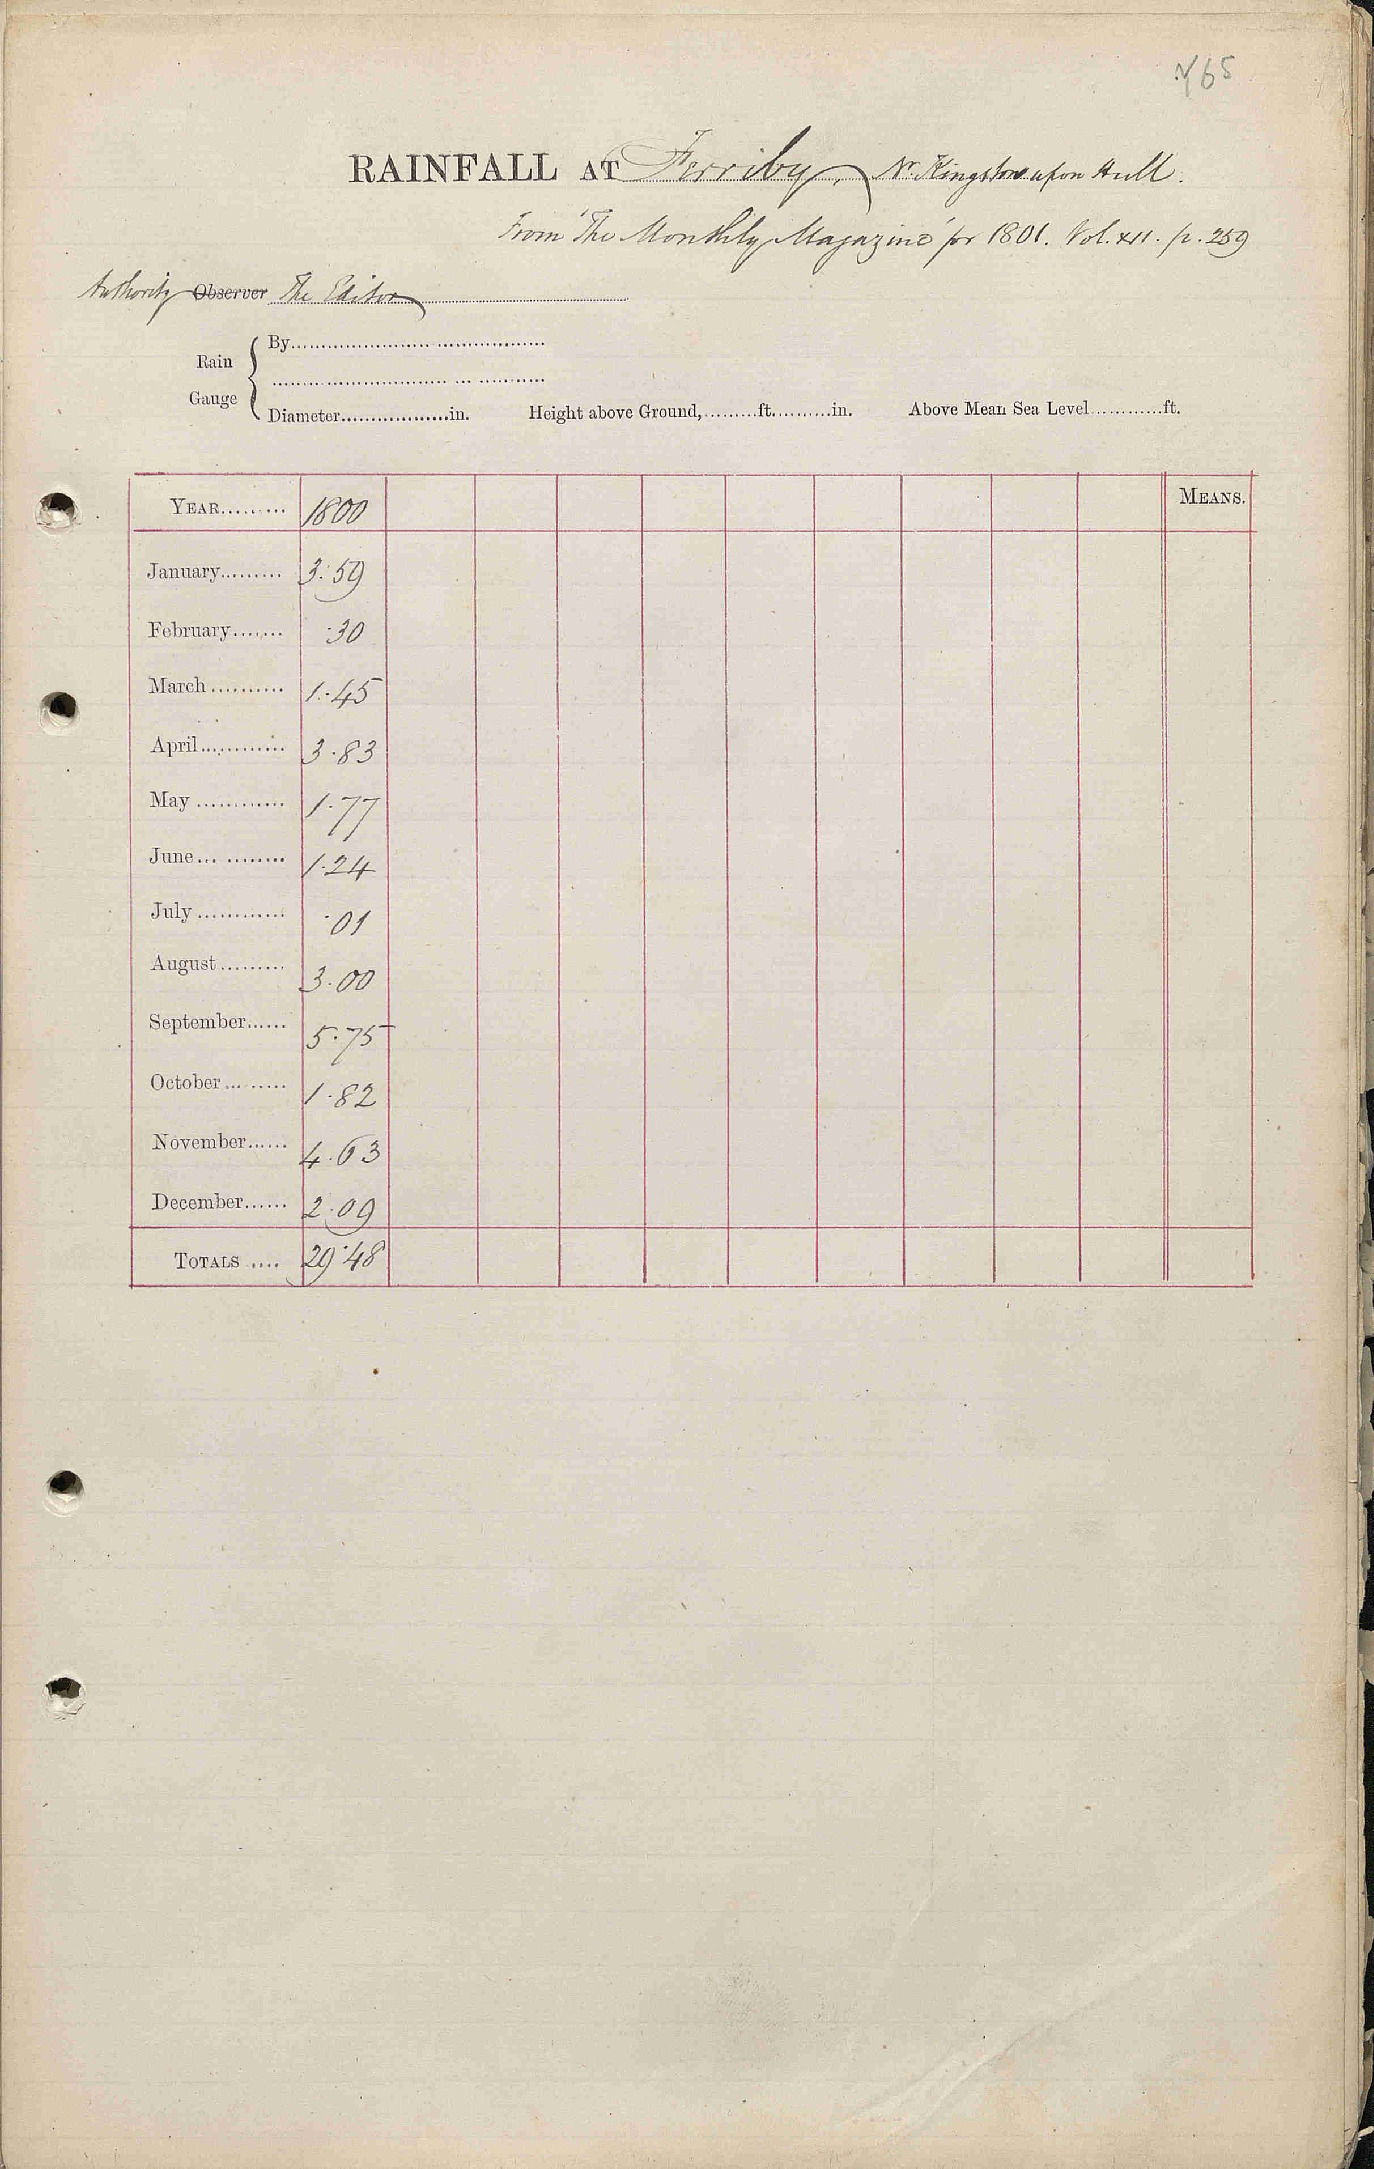 765
RAINFALL AT Ferriby, Nr. Kingston upon Hull.
From 'The Monthly Magazine' for 1801. Vol. XII. p. 259
Authority Observer The Editor
Rain Gauge
By
Diameter in. Height above Ground, ft. in. Above Mean Sea Level ft.
YEAR 1800 MEANS.
January 3.59
February .30
March 1.45
April 3.83
May 1.77
June 1.24
July .01
August 3.00
September 5.75
October 1.82
November 4.63
December 2.09
TOTALS 29.48